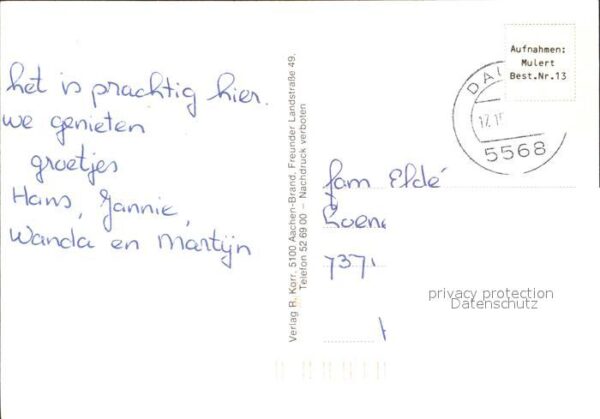 het is prachtig hier.
we genieten
groetjes
Hans, Jannie,
Wanda en Martijn
Verlag R. Korr, 5100 Aachen-Brand, Freunder Landstraße 49,
Telefon 52 69 00 – Nachdruck verboten
Aufnahmen:
Mulert
Best.Nr.13
5568
fam Efdé
737
privacy protection
Datenschutz